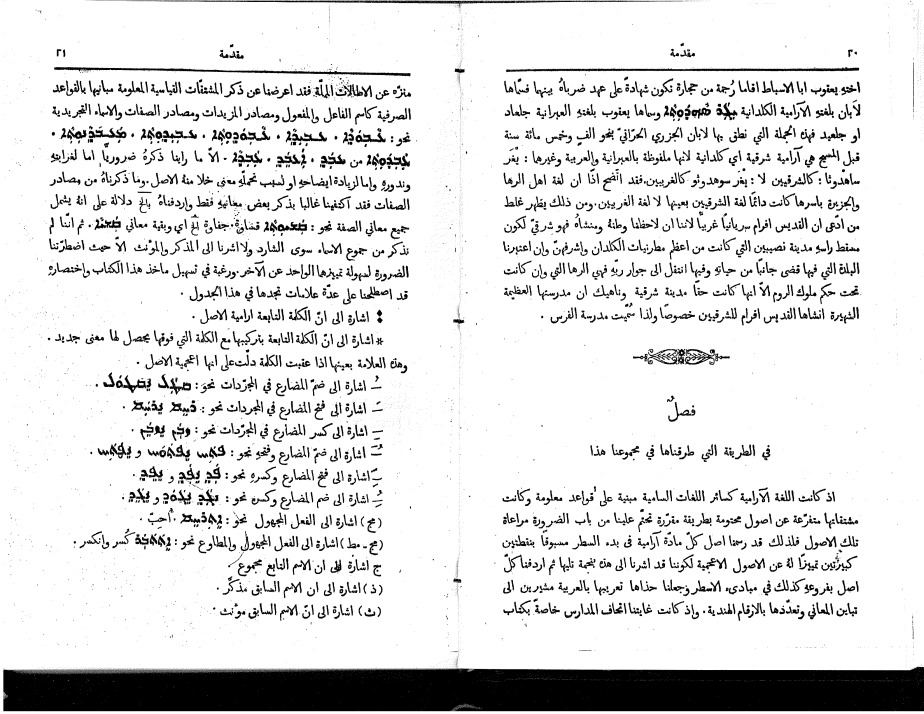 ٢٠
مقدّمة
اخته يعقوب ابا الاسباط اقاما رُجمة من حجارة تكون شهادةً على عهد ضرباهُ بينها فسمّاها
لابان بلغتهِ الآرامية الكلدانية ܝܓܪ ܣܗܕܘܬܐ وسماها يعقوب بلغتهِ العبرانية جلعاد
او جلعيد فهذه الجملة التي نطق بها لابان الجزري الحرّاني بنحو الفٍ وخمس مائة سنة
قبل المسيح هي آرامية شرقية اي كلدانية لانها ملفوظة بالعبرانية والعربية وغيرها : يْغَر
ساهْدوثا : كالشرقيين لا : يْغَر سوهدوثو كالغربيين. فقد اتّضح اذًا ان لغة اهل الرها
والجزيرة باسرها كانت دائمًا لغة الشرقيين بعينها لا لغة الغربيين. ومن ذلك يظهر غلط
من ادّعى ان القديس افرام سريانيًا غربيًا لاننا ان لاحظنا وطنهُ ومنشاهُ فهو شرقيّ لكون
مسقط راسهِ مدينة نصيبين التي كانت من اعظم مطرنيات الكلدان واشرفهنّ وان اعتبرنا
البلدة التي فيها قضى جانبًا من حياتهِ وفيها انتقل الى جوار ربّهِ فهي الرها التي وإن كانت
تحت حكم ملوك الروم الّا انها كانت حقًا مدينة شرقية وناهيك ان مدرستها العظيمة
الشهيرة انشاها القديس افرام للشرقيين خصوصًا ولذا سُمّيت مدرسة الفرس .
فصلٌ
في الطريقة التي طرقناها في مجموعنا هذا
اذ كانت اللغة الآرامية كسائر اللغات السامية مبنية على قواعد معلومة وكانت
مشتقاتها متفرّعة عن اصول محتومة بطريقة مقرّرة تحتّم علينا من باب الضرورة مراعاة
تلك الاصول فلذلك قد رسمنا اصل كلّ مادّة آرامية في بدء السطر مسبوقًا بنقطتين
كبيرتين تمييزًا لهُ عن الاصول الاعجمية لكوننا قد اشرنا الى هذه بنجمة تليها ثم اردفنا كلّ
اصل بفروعهِ كذلك في مبادىء الاسطر وجعلنا حذاها تعريبها بالعربية مشيرين الى
تباين المعاني وتعدّدها بالارقام الهندية. واذ كانت غايتنا اتحاف المدارس خاصةً بكتاب
٢١
مقدّمة
منزّه عن الاطالات المملّة فقد اعرضنا عن ذكر المشتقّات القياسية المعلومة مبانيها بالقواعد
الصرفية كاسم الفاعل والمفعول ومصادر المزيدات ومصادر الصفات والاسماء التجريدية
نحو :
من
. الّا ما راينا ذكرهُ ضروريًا اما لغرابتهِ
وندورهِ وإما لزيادة ايضاحهِ او لسبب تحملّهِ معنى خلا منهُ الاصل. وما ذكرناهُ من مصادر
الصفات فقد اكتفينا غالبا بذكر بعض معانيهِ فقط واردفناهُ بالخ دلالة على انه يشمل
جميع معاني الصفة نحو : قساوة. جفاوة الخ اي وبقية معاني . ثم اننا لم
نذكر من جموع الاسماء سوى الشارد ولا اشرنا الى المذكر والمونث الّا حيث اضطرّتنا
الضرورة لسهولة تمييزها الواحد عن الآخر. ورغبة في تسهيل ماخذ هذا الكتاب واختصارهِ
قد اصطلحنا على عدّة علامات تجدها في هذا الجدول .
: اشارة الى انّ الكلمة التابعة ارامية الاصل .
* اشارة الى انّ الكلمة التابعة بتركيبها مع الكلمة التي فوقها يحصل لها معنى جديد .
وهذه العلامة بعينها اذا عقبت الكلمة دلّت على انها اعجمية الاصل .
ـُ اشارة الى ضمّ المضارع في المجرّدات نحو :
ـَ اشارة الى فتح المضارع في المجردات نحو :
ـِ اشارة الى كسر المضارع في المجرّدات نحو :
اشارة الى ضمّ المضارع وفتحهِ نحو : و
اشارة الى فتح المضارع وكسرهِ نحو : و
اشارة الى ضم المضارع وكسرهِ نحو : و
(مج) اشارة الى الفعل المجهول نحو : . اُحِبّ .
(مج - مط) اشارة الى الفعل المجهول والمطاوع نحو : كُسر وانكسر .
ج اشارة الى ان الاسم التابع مجموع
(ذ) اشارة الى ان الاسم السابق مذكّر.
(ث) اشارة الى انّ الاسم السابق مونث .